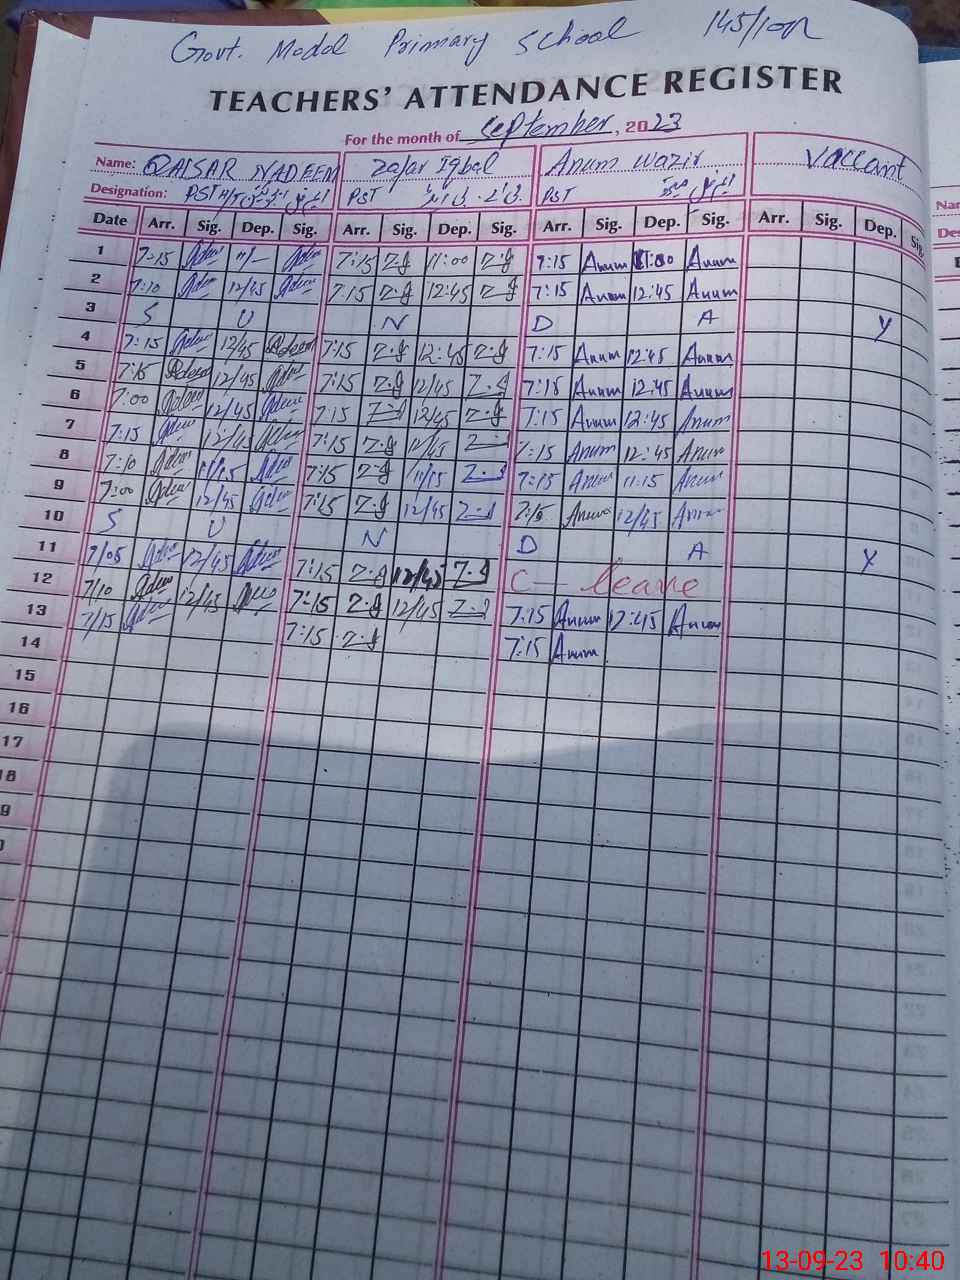 Govt. Model Primary School 145/10R
TEACHERS' ATTENDANCE REGISTER
For the month of September, 2023
Name: QAISAR NADEEM Zafar Iqbal Anum Wazir Vaccant
Designation: PST PST PST
Date Arr. Sig. Dep. Sig. Arr. Sig. Dep. Sig. Arr. Sig. Dep. Sig. Arr. Sig. Dep. Sig
1 7-15 11/- 7:15 Z.J 11:00 Z.J 7:15 Anum 11:00 Anum
2 7:10 12/45 7:15 Z.J 12:45 Z.J 7:15 Anum 12:45 Anum
3 S U N D A Y
4 7:15 12/45 7:15 Z.J 12:45 Z.J 7:15 Anum 12:45 Anum
5 7:15 12/45 7:15 Z.J 12/45 Z.J 7:15 Anum 12:45 Anum
6 7:00 12/45 7:15 Z.J 12/45 Z.J 7:15 Anum 12:45 Anum
7 7:15 12/45 7:15 Z.J 12/45 Z.J 7:15 Anum 12:45 Anum
8 7:10 11/15 7:15 Z.J 11/15 Z.J 7:15 Anum 11:15 Anum
9 7:00 12/45 7:15 Z.J 12/45 Z.J 7:15 Anum 12/45 Anum
10 S U N D A Y
11 7/05 12/45 7:15 Z.J 12/45 Z.J C-leave
12 7/10 12/45 7:15 Z.J 12/45 Z.J 7:15 Anum 12:45 Anum
13 7/15 7:15 Z.J 7:15 Anum
14
15
16
17
18
9
13-09-23 10:40